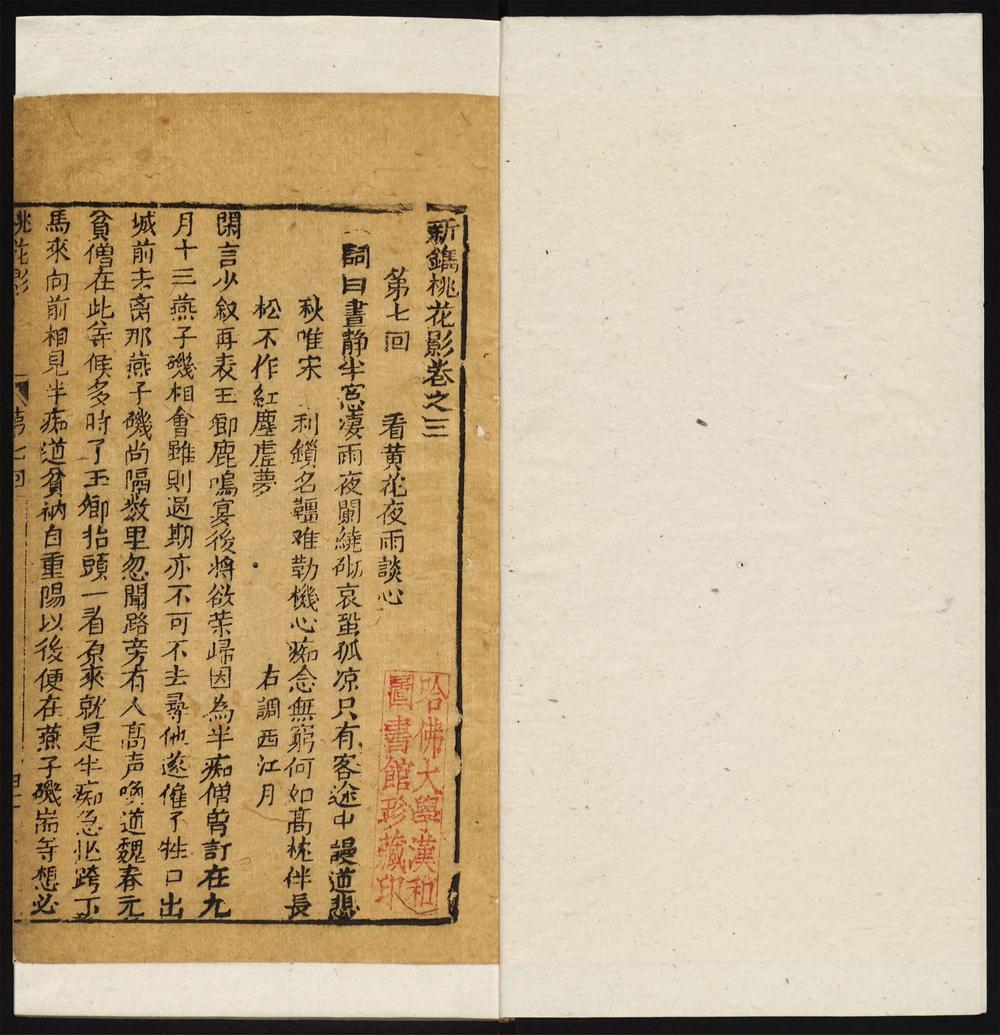 新鐫桃花影卷之三
第七回　看黃花夜雨談心
詞曰晝靜半窓凄雨夜闌繞砌哀蛩孤凉只有客途中謾道悲
秋唯宋　利鎖名韁难勒機心痴念無窮何如高枕伴長
松不作紅塵虚夢　右調西江月
閑言少叙再表玉卿鹿鳴宴後將欲荣歸因為半痴僧曾訂在九
月十三燕子磯相會雖則過期亦不可不去尋他遂催了牲口出
城前去离那燕子磯尚隔数里忽聞路旁有人高声喚道魏春元
貧僧在此等候多時了玉卿抬頭一看原來就是半痴急忙跨下
馬來向前相見半痴道貧衲自重陽以後便在燕子磯耑等想必
桃花影　第七回
哈佛大學漢和
圖書館珍藏印